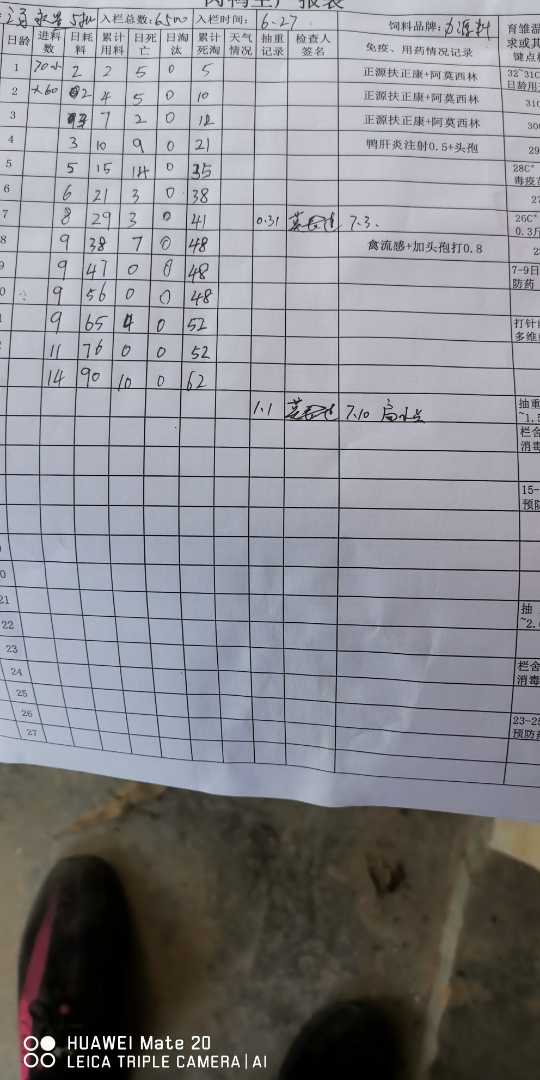 肉鸭生产报表
5批 入栏总数:6500 入栏时间: 6-27 饲料品牌: 力源料
日龄 进料数 日耗料 累计用料 日死亡 日淘汰 累计死淘 天气情况 抽重记录 检查人签名 免疫、用药情况记录
1 70小 2 2 5 0 5 正源扶正康+阿莫西林 32~31C
2 大60 2 4 5 0 10 正源扶正康+阿莫西林 31C
3 3 7 2 0 12 正源扶正康+阿莫西林
4 3 10 9 0 21 鸭肝炎注射0.5+头孢 29
5 5 15 14 0 35 28C°
6 6 21 3 0 38
7 8 29 3 0 41 0.31 7.3. 26C°
8 9 38 7 0 48 禽流感+加头孢打0.8
9 9 47 0 0 48 7-9日
0 9 56 0 0 48
9 65 4 0 52 打针
11 76 0 0 52
14 90 10 0 62
1.1 7.10 抽重
栏舍
消毒
15-
预防
0
21 抽
22 ~2.
23
24 栏舍
消毒
25
26 23-25
预防
27
HUAWEI Mate 20
LEICA TRIPLE CAMERA | AI